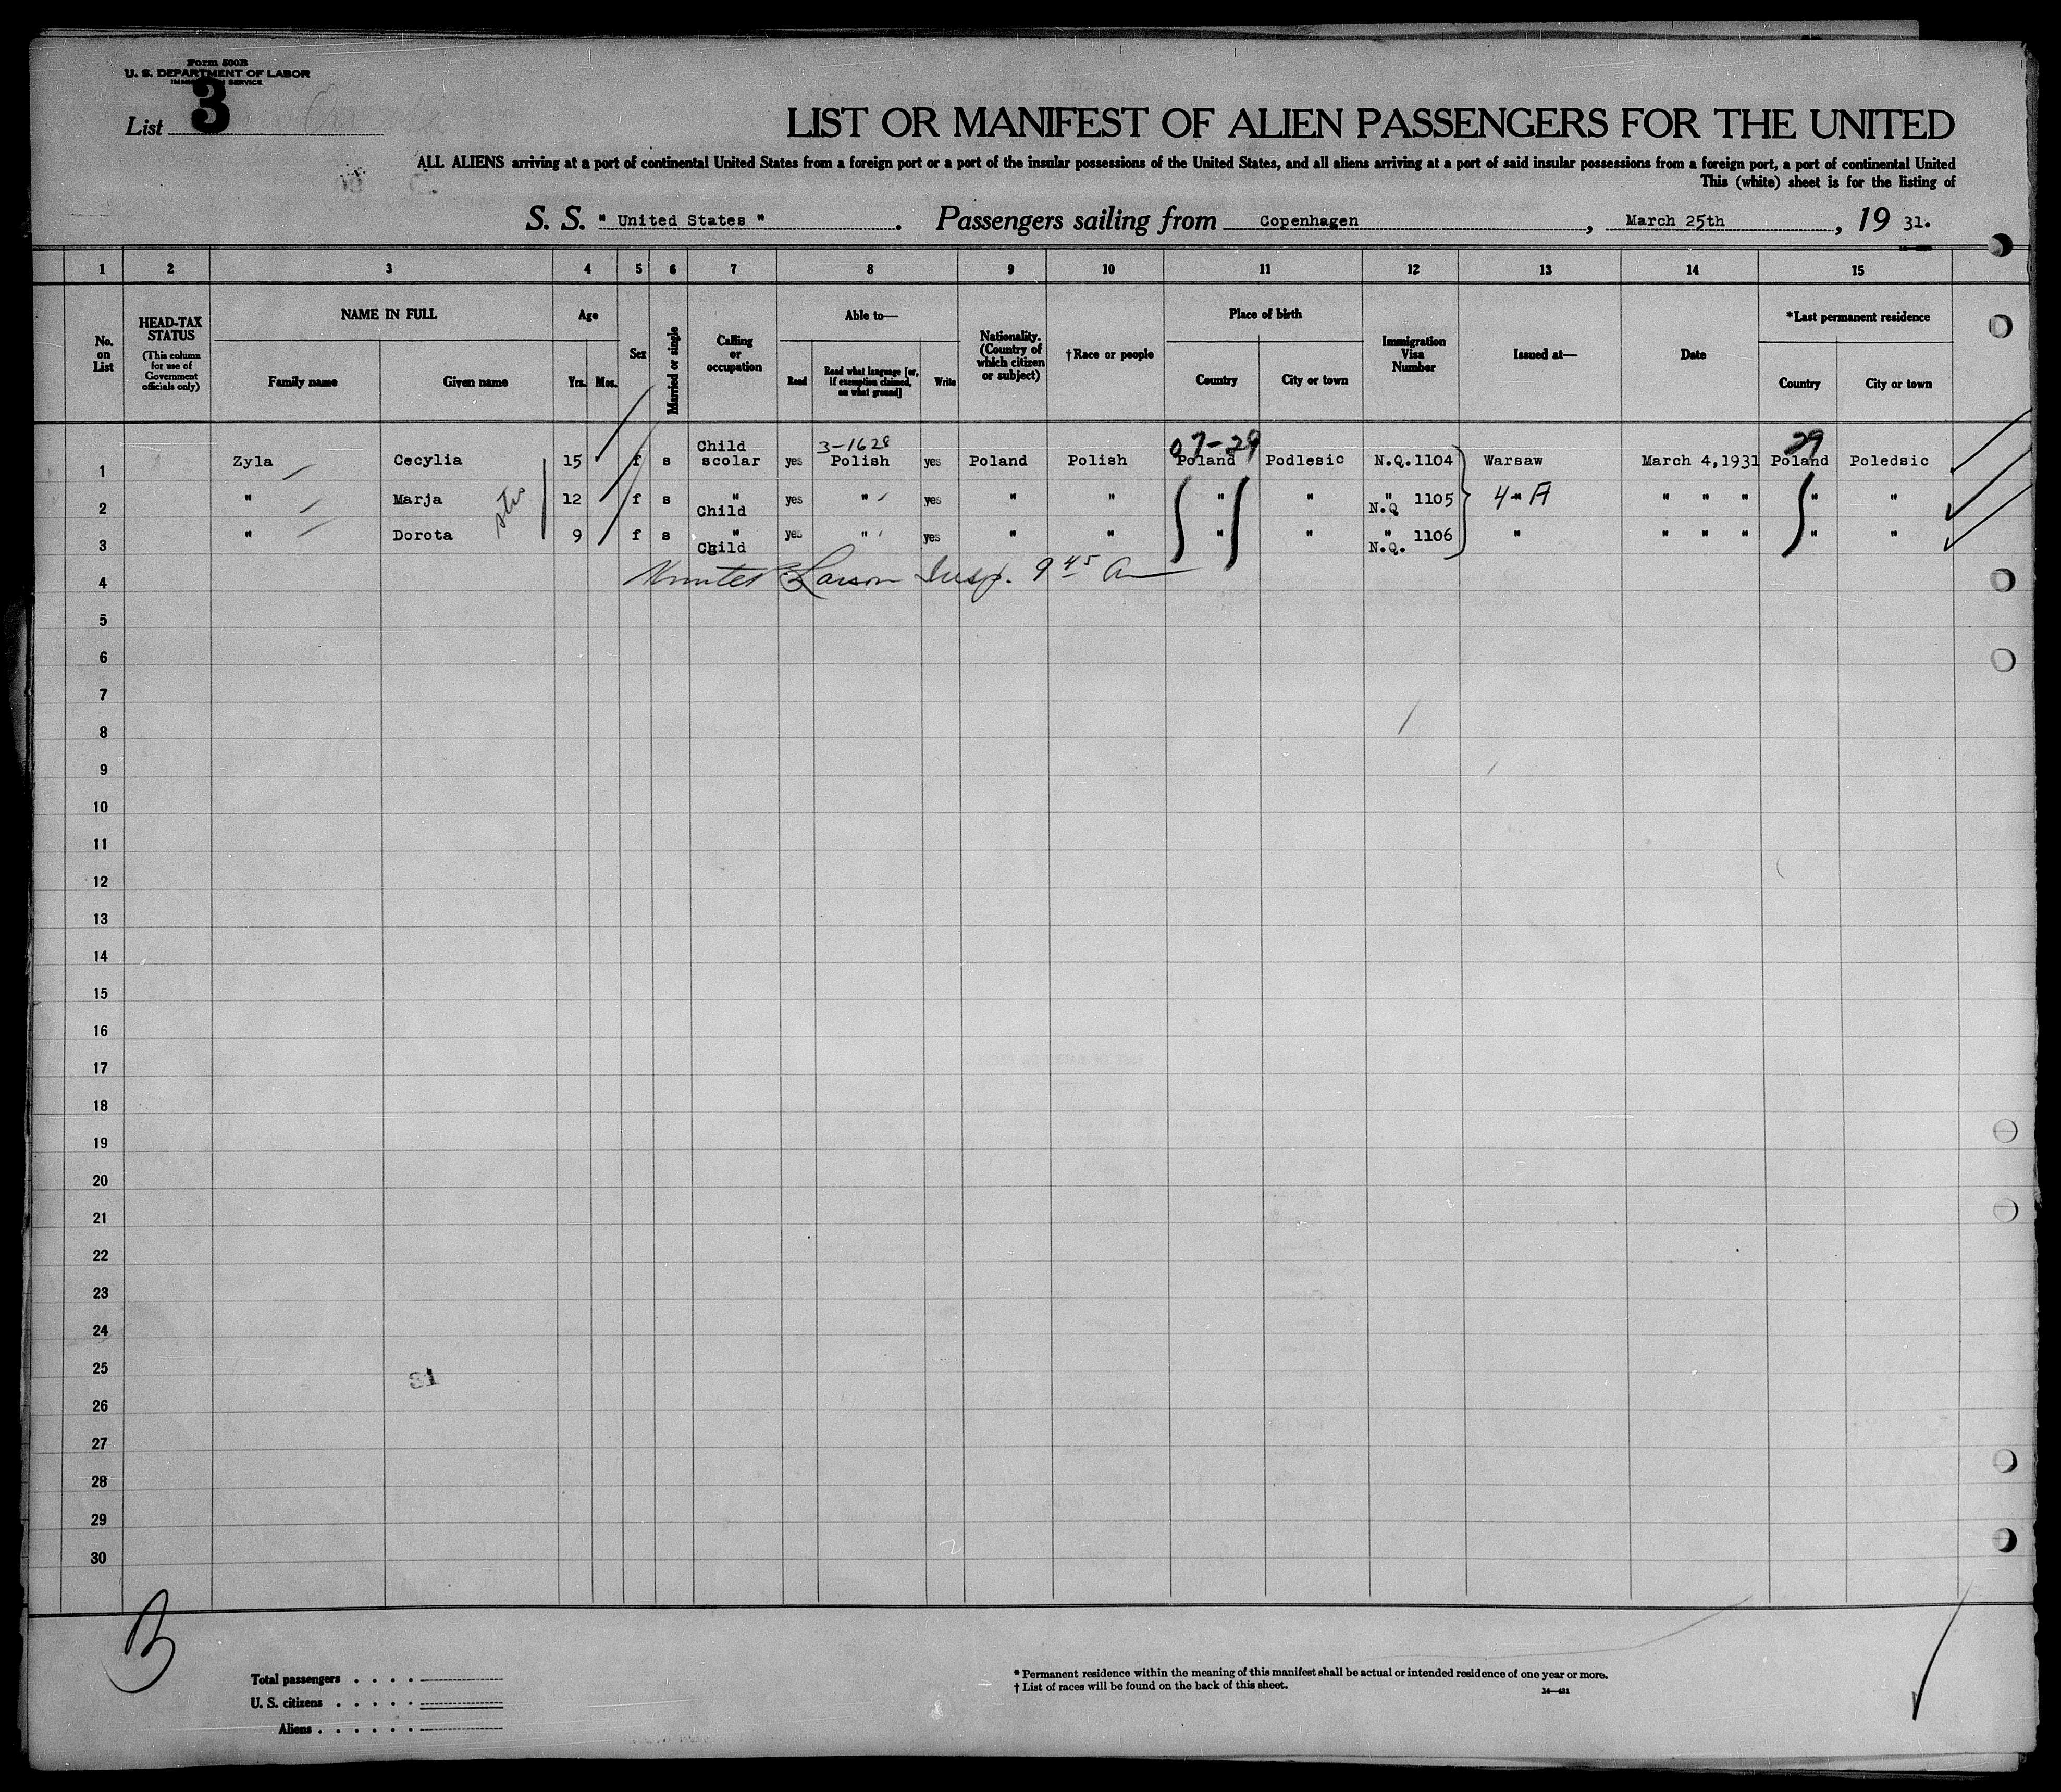 Form 500B
U. S. DEPARTMENT OF LABOR
IMMIGRATION SERVICE
List 3
LIST OR MANIFEST OF ALIEN PASSENGERS FOR THE UNITED
ALL ALIENS arriving at a port of continental United States from a foreign port or a port of the insular possessions of the United States, and all aliens arriving at a port of said insular possessions from a foreign port, a port of continental United
This (white) sheet is for the listing of
S. S. " United States " . Passengers sailing from Copenhagen , March 25th , 19 31.
1 2 3 4 5 6 7 8 9 10 11 12 13 14 15
No. on List
HEAD-TAX STATUS (This column for use of Government officials only)
NAME IN FULL
Family name
Given name
Age
Yrs.
Mos.
Sex
Married or single
Calling or occupation
Able to—
Read
Read what language [or, if exemption claimed, on what ground]
Write
Nationality. (Country of which citizen or subject)
†Race or people
Place of birth
Country
City or town
Immigration Visa Number
Issued at—
Date
*Last permanent residence
Country
City or town
Child 3-1628 07-29 29
1 Zyla Cecylia 15 f s scolar yes Polish yes Poland Polish Poland Podlesic N.Q.1104 Warsaw March 4,1931 Poland Poledsic
2 " Marja 12 f s " yes " yes " " " " " 1105 4-A " " " " "
Child N.Q
3 " Dorota 9 f s " yes " yes " " " " " 1106 " " " " " "
Child N.Q.
4 Larson Insp. 9 45 A
5
6
7
8
9
10
11
12
13
14
15
16
17
18
19
20
21
22
23
24
25
31
26
27
28
29
30
B
Total passengers . . . .
U. S. citizens . . . . .
Aliens . . . . . .
* Permanent residence within the meaning of this manifest shall be actual or intended residence of one year or more.
† List of races will be found on the back of this sheet.
14—431